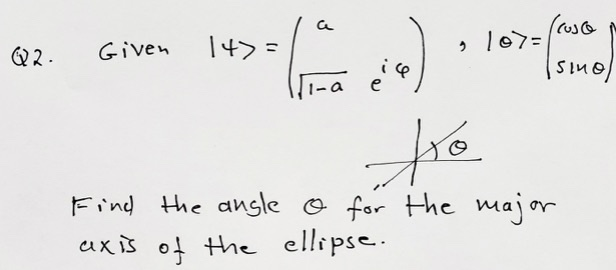 Q2. Given |ψ> = ( a √1-a e^iφ ) , |θ> = ( cosθ sinθ )
θ
Find the angle θ for the major
axis of the ellipse.